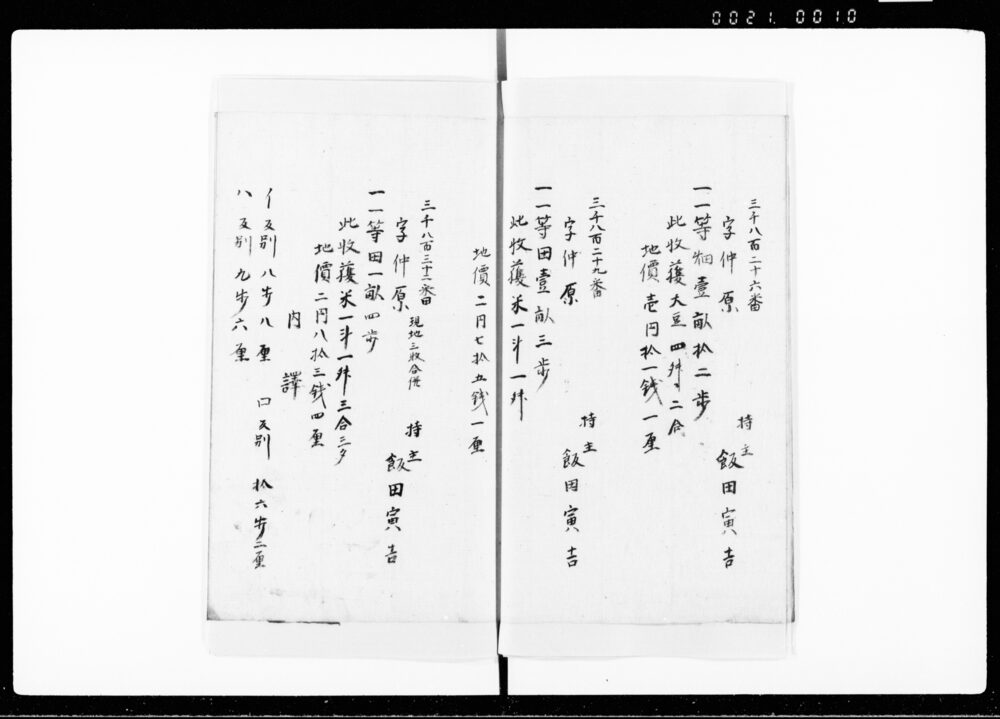 0021.0010
三千八百二十六番
字仲原
持主 飯田寅吉
一一等畑壹畝拾二歩
此收獲大豆四舛二合
地價壱円拾一銭一厘
三千八百二十九番
字仲原
持主 飯田寅吉
一一等田壹畝三歩
此收獲米一斗一舛
地價二円七拾五銭一厘
三千八百三十二番田 現地三枚合併
字仲原
持主 飯田寅吉
一一等田一畝四歩
此收獲米一斗一舛三合三夕
地價二円八拾三銭四厘
内譯
イ反別 八歩八厘 ロ反別 拾六歩二厘
ハ反別 九歩六厘